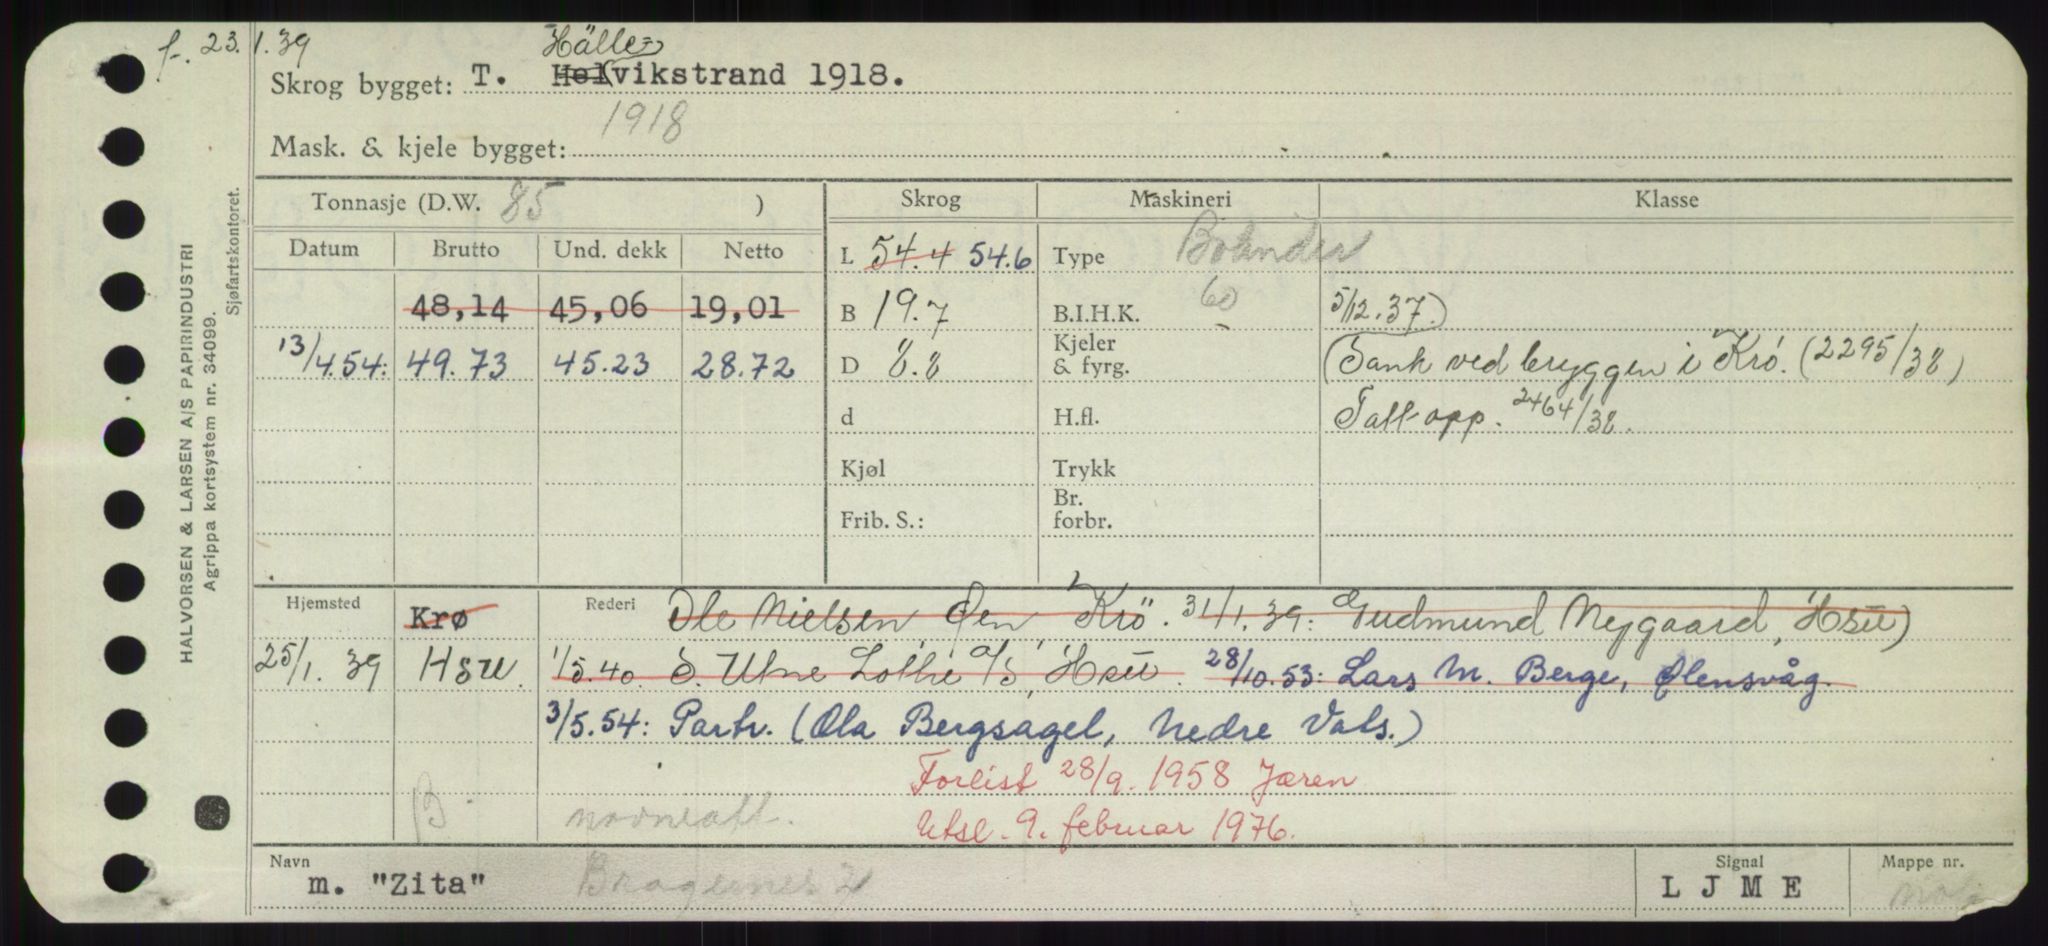 f. 23. 1. 39
Hälle-
Skrog bygget: T. Helvikstrand 1918.
1918
Mask. & kjele bygget:
Tonnasje (D.W. 85 ) Skrog Maskineri Klasse
Datum Brutto Und. dekk Netto L 54.4 54.6 Type Bolinder
48,14 45,06 19,01 B 19.7 B.I.H.K. 60 5/12.37.)
13/4.54: 49.73 45.23 28.72 D 8.8 Kjeler & fyrg. (Sank ved bryggen i Krø. (2295/38)
d H.fl. Tatt opp. 2464/38.
Kjøl Trykk
Frib. S.: Br. forbr.
Hjemsted Krø Rederi Ole Nielsen Øen Krö. 31/1.39: Gudmund Nygaard, Hsu)
25/1. 39 Hsu. 1/5.40. S. Utne Lothe a/s, Hsu. 28/10.53: Lars M. Berge, Ølensvåg.
3/5.54: Partr. (Ola Bergsagel, Nedre Vats.)
Forlist 28/9. 1958 Jæren
B navneatt. Utsl. 9. februar 1976.
Navn Signal Mappe nr.
m. "Zita" Bragernes 2 L J M E
HALVORSEN & LARSEN A/S PAPIRINDUSTRI
Agrippa kortsystem nr. 34099.
Sjøfartskontoret.